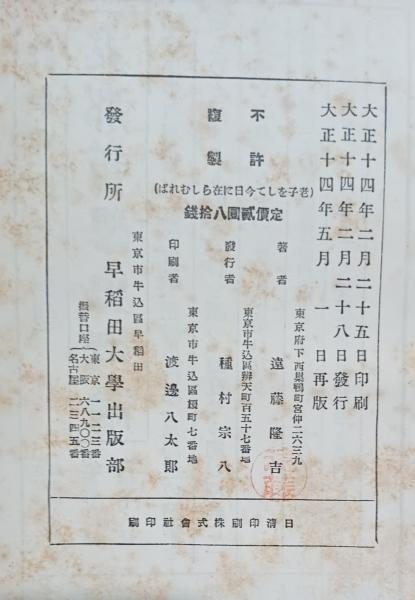 大正十四年二月二十五日印刷
大正十四年二月二十八日發行
大正十四年五月 一 日再版
不許複製
(老子をして今日に在らしむれば)
定價貳圓八拾錢
東京府下西巢鴨町宮仲二六三九
著者 遠藤隆吉
東京市牛込區辨天町百五十七番地
發行者 種村宗八
東京市牛込區榎町七番地
印刷者 渡邊八太郎
東京市牛込區早稻田
發行所 早稻田大學出版部
振替口座
(東京 一一二三番
大阪 六八九〇〇番
名古屋 二三四五番)
日淸印刷株式會社印刷